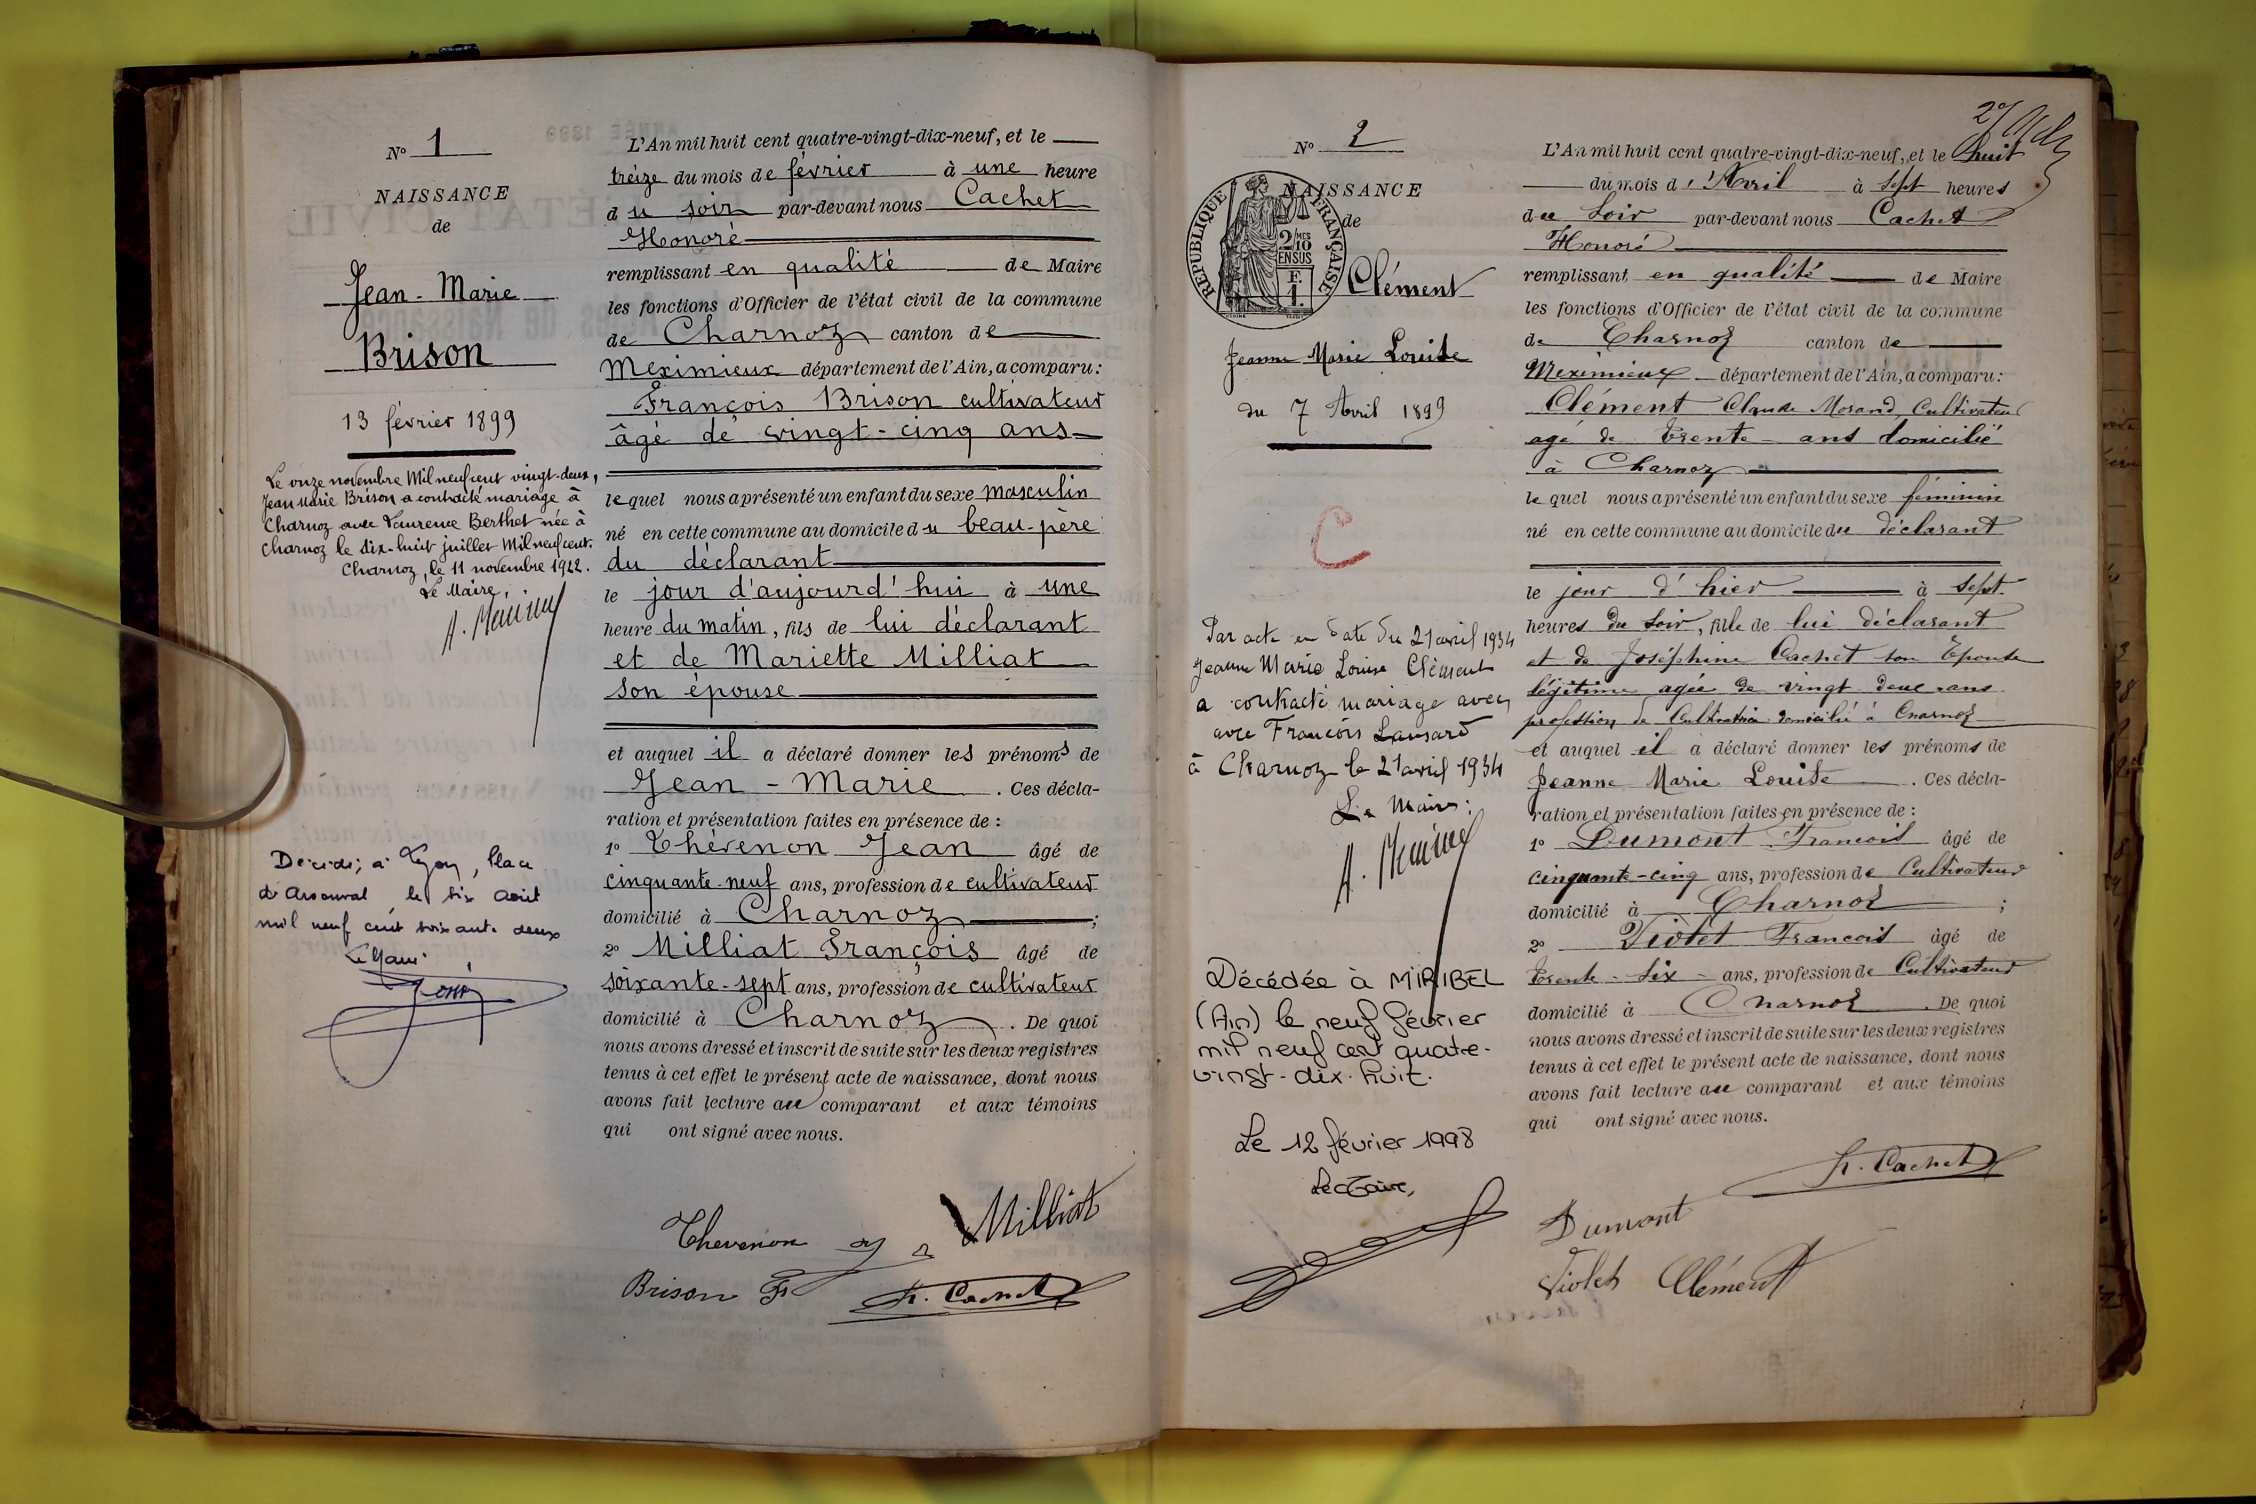 N° 1
NAISSANCE
de
Jean-Marie
Brison
13 février 1899
Le onze novembre Mil neuf cent vingt-deux,
Jean Marie Brison a contracté mariage à
Charnoz avec Laurence Berthet née à
Charnoz le dix-huit juillet Mil neuf cent.
Charnoz, le 11 novembre 1922.
Le Maire,
Décédé, à Lyon, Place
d'Arsonval, le six Août
mil neuf cent soixante deux
Le Maire
L'An mil huit cent quatre-vingt-dix-neuf, et le
treize du mois de février à une heure
du soir par-devant nous Cachet
Honoré
remplissant en qualité de Maire
les fonctions d'Officier de l'état civil de la commune
de Charnoz canton de
Meximieux département de l'Ain, a comparu:
François Brison cultivateur
âgé de vingt-cinq ans
lequel nous a présenté un enfant du sexe masculin
né en cette commune au domicile du beau-père
du déclarant
le jour d'aujourd'hui à une
heure du matin, fils de lui déclarant
et de Mariette Milliat
son épouse
et auquel il a déclaré donner les prénoms de
Jean-Marie. Ces décla-
ration et présentation faites en présence de:
1° Thévenon Jean âgé de
cinquante-neuf ans, profession de cultivateur
domicilié à Charnoz;
2° Milliat François âgé de
soixante-sept ans, profession de cultivateur
domicilié à Charnoz. De quoi
nous avons dressé et inscrit de suite sur les deux registres
tenus à cet effet le présent acte de naissance, dont nous
avons fait lecture au comparant et aux témoins
qui ont signé avec nous.
Thevenon Milliat
Brison F H. Cachet
N° 2
NAISSANCE
de
REPUBLIQUE FRANÇAISE
2/10MES
EN SUS
F.
1.
Clément
Jeanne Marie Louise
du 7 Avril 1899
C
Par acte en date du 21 avril 1934
Jeanne Marie Louise Clément
a contracté mariage avec
avec François Lansard
à Charnoz le 21 avril 1934
Le Maire:
Décédée à MIRIBEL
(Ain) le neuf février
mil neuf cent quatre-
vingt-dix-huit.
Le 12 février 1998
Le Maire,
L'An mil huit cent quatre-vingt-dix-neuf, et le huit
du mois d'Avril à sept heures
du Soir par-devant nous Cachet
Honoré
remplissant en qualité de Maire
les fonctions d'Officier de l'état civil de la commune
de Charnoz canton de
Meximieux département de l'Ain, a comparu:
Clément Claude Morand, Cultivateur
agé de Trente ans domicilié
à Charnoz
lequel nous a présenté un enfant du sexe féminin
né en cette commune au domicile du déclarant
le jour d'hier à sept
heures du soir, fille de lui déclarant
et de Joséphine Cachet son Epouse
légitime agée de vingt deux ans
profession de Cultivatrice domicilié à Charnoz
et auquel il a déclaré donner les prénoms de
Jeanne Marie Louise. Ces décla-
ration et présentation faites en présence de:
1° Dumont Francois âgé de
cinquante-cinq ans, profession de Cultivateur
domicilié à Charnoz;
2° Violet Francois âgé de
Trente-six ans, profession de Cultivateur
domicilié à Charnoz. De quoi
nous avons dressé et inscrit de suite sur les deux registres
tenus à cet effet le présent acte de naissance, dont nous
avons fait lecture au comparant et aux témoins
qui ont signé avec nous.
H. Cachet
Dumont
Violet Clément